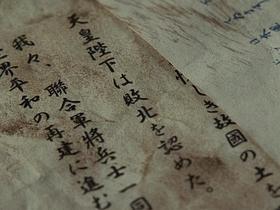 しき故國の土を
天皇陛下は敗北を認めた。
我々、聯合軍將兵士一同
世界平和の再建に進む